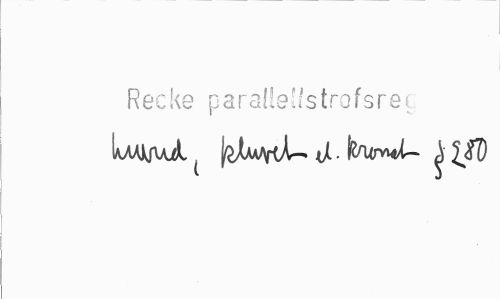 Recke parallellstrofsreg
huvud, kluvet el. kronat § 280